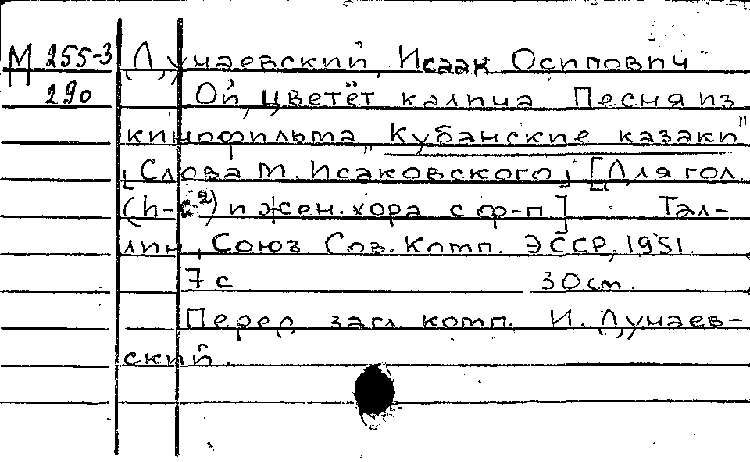 М 255-3 Дунаевский, Исаак Осипович
290 Ой, цветёт калина Песня из
кинофильма „Кубанские казаки"
[Слова М. Исаковского] [Для гол.
(h-c²) и жен. хора с ф-п.] Тал-
лин, Союз Сов. Комп. ЭССР, 1951.
7 с 30 см.
Перед загл. комп. И. Дунаев-
ский.